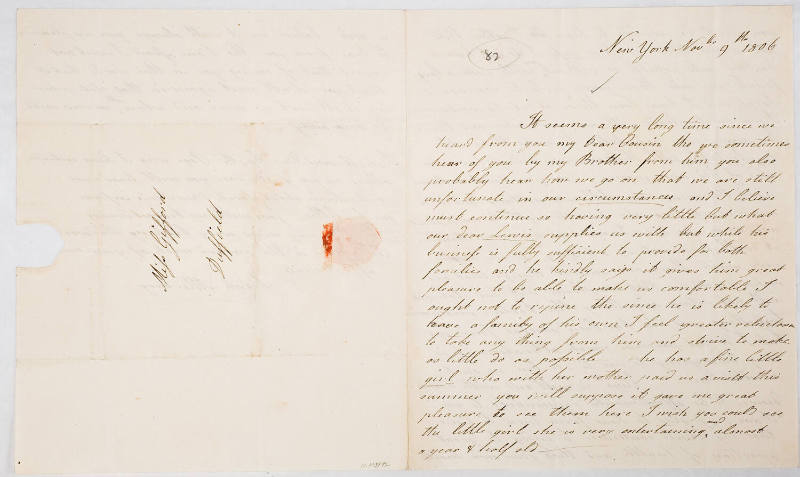 Miss Gifford
Duffield
82
New York Novbr 9th 1806
It seems a very long time since we
heard from you my Dear Cousin tho we sometimes
hear of you by my Brother from him you also
probably hear how we go on that we are still
unfortunate in our circumstances and I believe
must continue so having very little but what
our dear Lewis supplies us with but while his
business is fully sufficient to provide for both
families and he kindly says it gives him great
pleasure to be able to make us comfortable I
ought not to repine tho since he is likely to
have a family of his own I feel greater reluctance
to take any thing from him and strive to make
as little do as possible he has a fine little
girl who with her mother paid us a visit this
summer you will suppose it gave me great
pleasure to see them here I wish you could see
the little girl she is very entertaining and almost
a year & half old